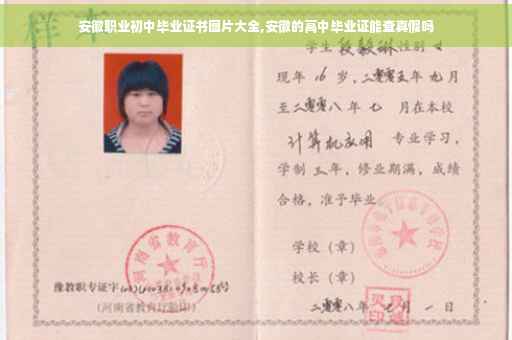 安徽职业初中毕业证书图片大全,安徽的高中毕业证能查真假吗
样本
学生段毅琳性别女
现年16岁,二零零五年九月
至二零零八年七 月在本校
计算机应用 专业学习,
学制三年,修业期满,成绩
合格,准予毕业
学校(章)
校长(章)
二零零八年 月一日
河南省教育厅
豫教职专证字
(河南省教育厅验印)